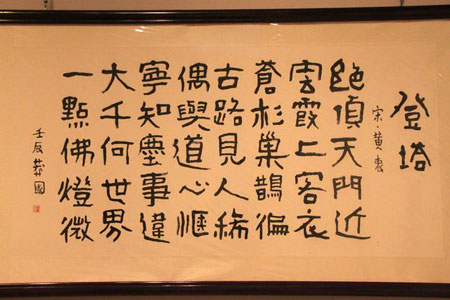 登塔
宋·黄
絶頂天門近
雲霞上客衣
蒼杉巢鵲徧
古路見人稀
偶與道心愜
寧知塵事違
大千何世界
一點佛燈微
壬辰 國